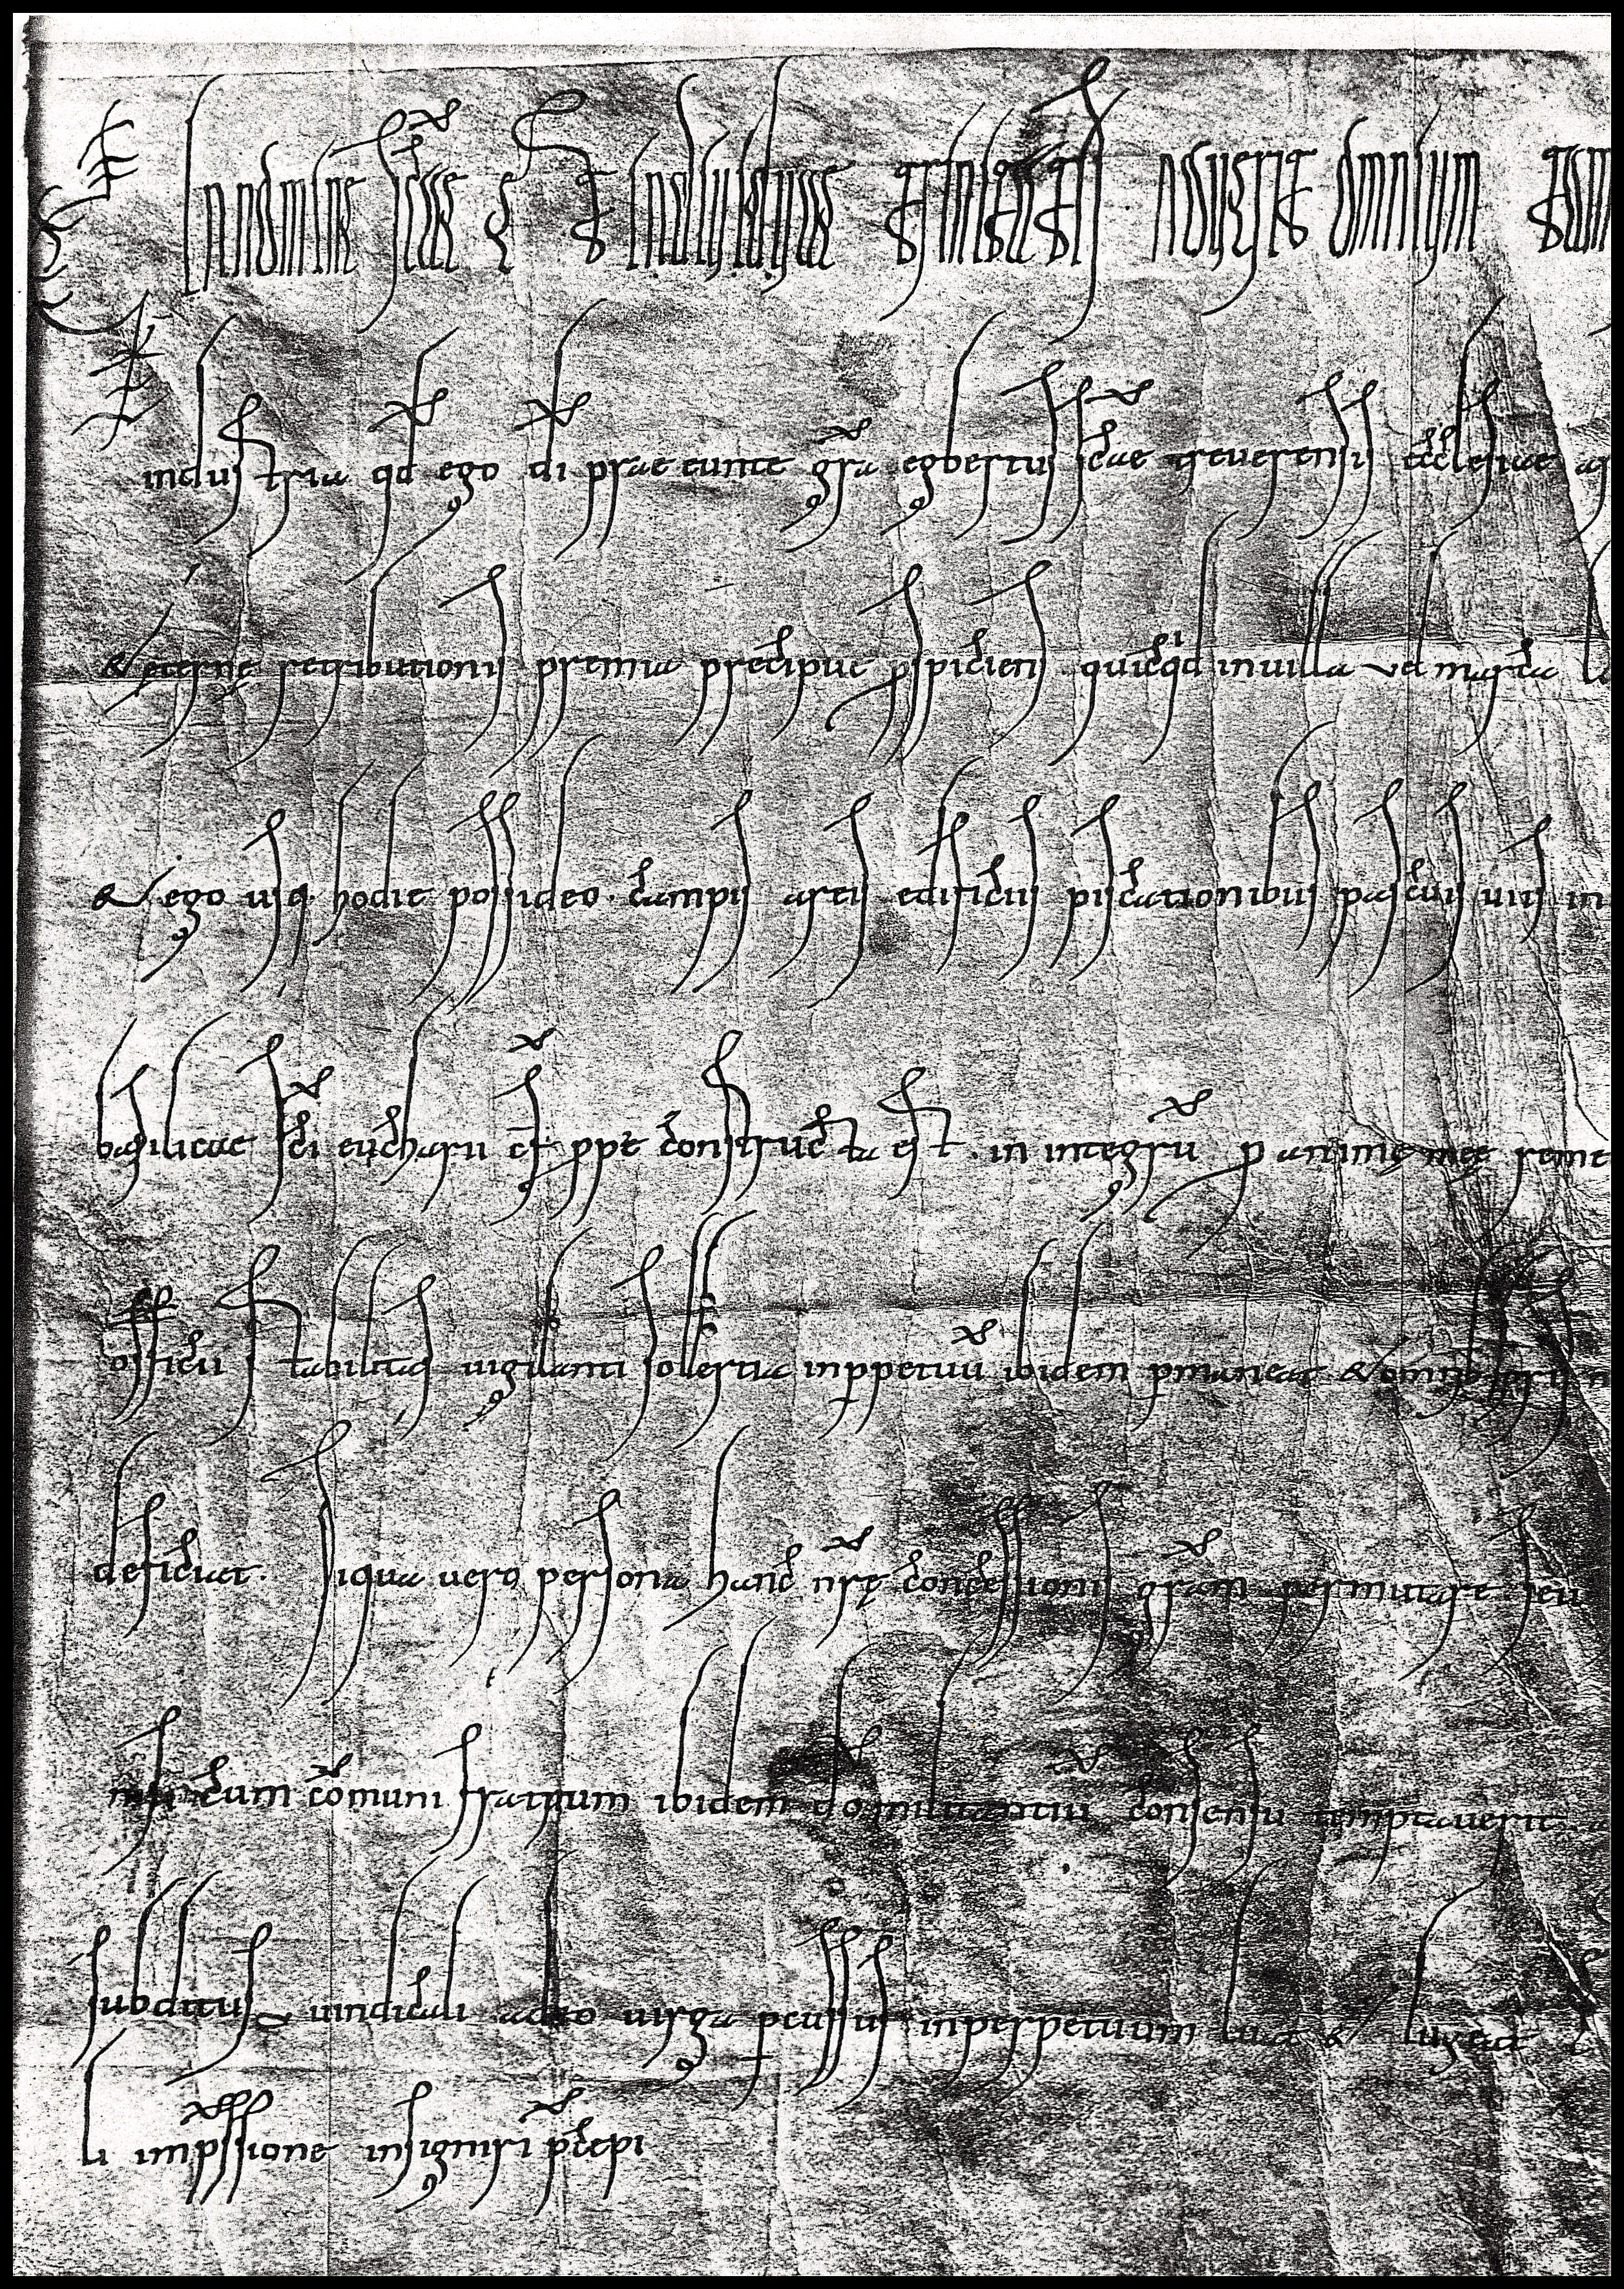 In nomine scae et indiuiduae trinitatis Nouerit omnium
industria qd ego di prae eunte gra egbertus scae treuerensis aecclesiae
& eterne retributionis premia precipue pspiciens quicqd in uilla vel marca
& ego usq. hodie possideo. campis artis edificiis piscationibus pascuis uiis in
basilicae sci eucharii cf ppe constructa est. in integru p anime mee reme
officii stabilitas uigilanti solertia inppetuu ibidem pmaneat & omnib
deficiat. Siqua vero persona hanc nre concessionis gram permutare seu
cum comuni fratrum ibidem do militantiu consensu temptauerit
subditus uindicali uirga pcussus inperpetuum luat & lugeat
li impssione insigniri pcepi